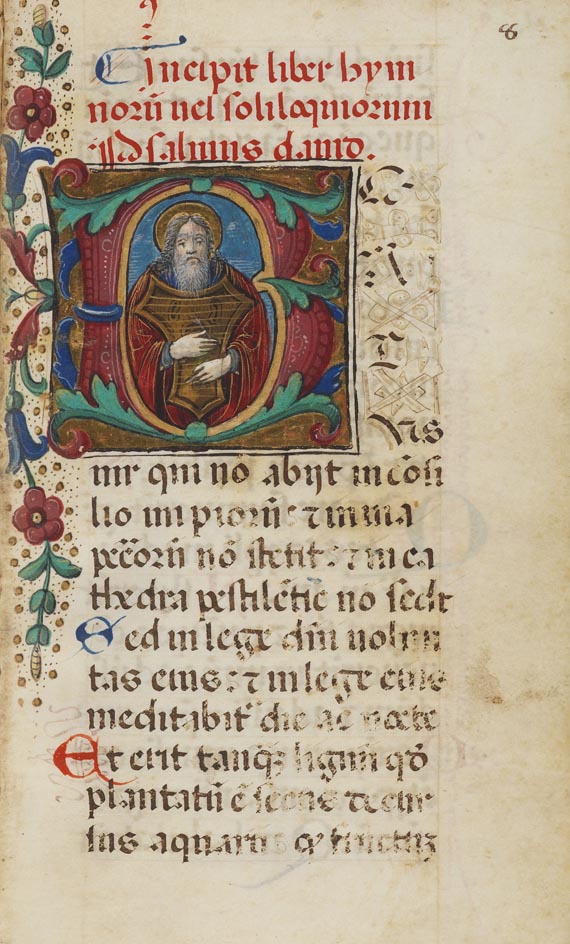 8
Incipit liber hym
norũ uel soliloquiorum
Psalmus dauid.
B E
A
T
VS
uir qui nõ abijt in cõsi
lio impiorũ: et in uia
peccorũ nõ stetit: et in ca
thedra pestilẽtie nõ sedit
Sed in lege dñi uolun
tas eius: et in lege eius
meditabit̃ die ac nocte
Et erit tanq̃ lignũ qd̃
plantatũ ẽ secus decur
sus aquarũ qd̃ fructũ